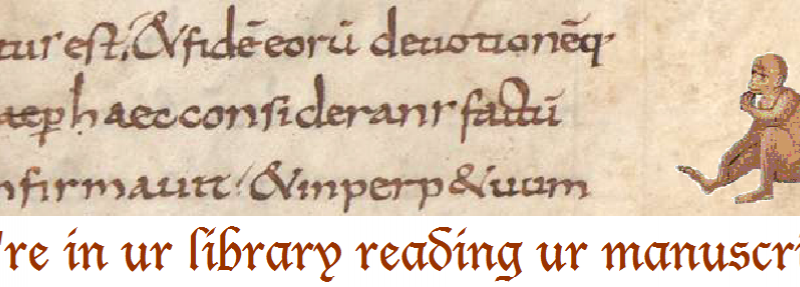 tur est, & fidē eorū deuotionēq·
aep haec considerans factū
nfirmauit. & inperp&uum
're in ur library reading ur manuscri